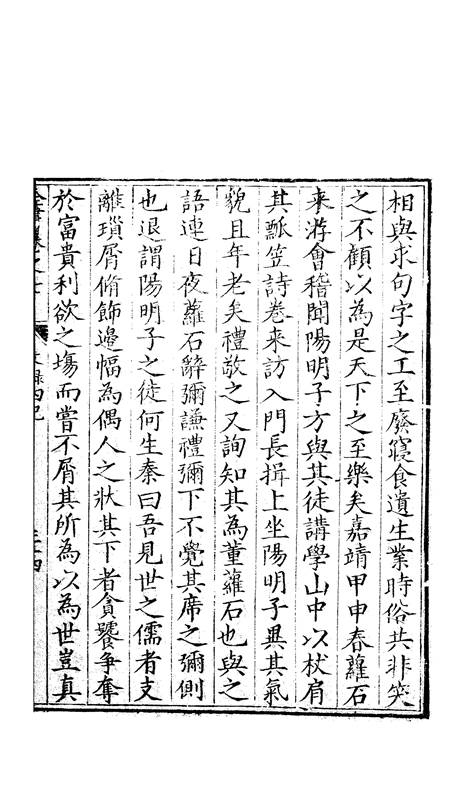 相與求句字之工至廢寢食遺生業時俗共非笑
之不顧以為是天下之至樂矣嘉靖甲申春蘿石
來游會稽聞陽明子方與其徒講學山中以杖肩
其瓢笠詩卷來訪入門長揖上坐陽明子異其氣
貌且年老矣禮敬之又詢知其為董蘿石也與之
語連日夜蘿石辭彌謙禮彌下不覺其席之彌側
也退謂陽明子之徒何生秦曰吾見世之儒者支
離瑣屑脩飾邊幅為偶人之狀其下者貪饕爭奪
於富貴利欲之塲而嘗不屑其所為以為世豈真